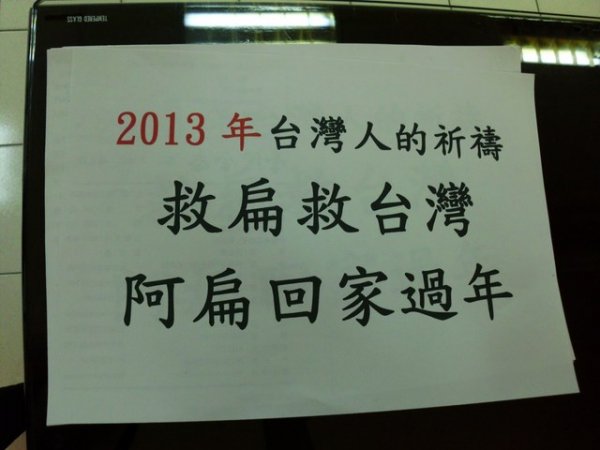 TEMPERED GLASS
2013年台灣人的祈禱
救扁救台灣
阿扁回家過年